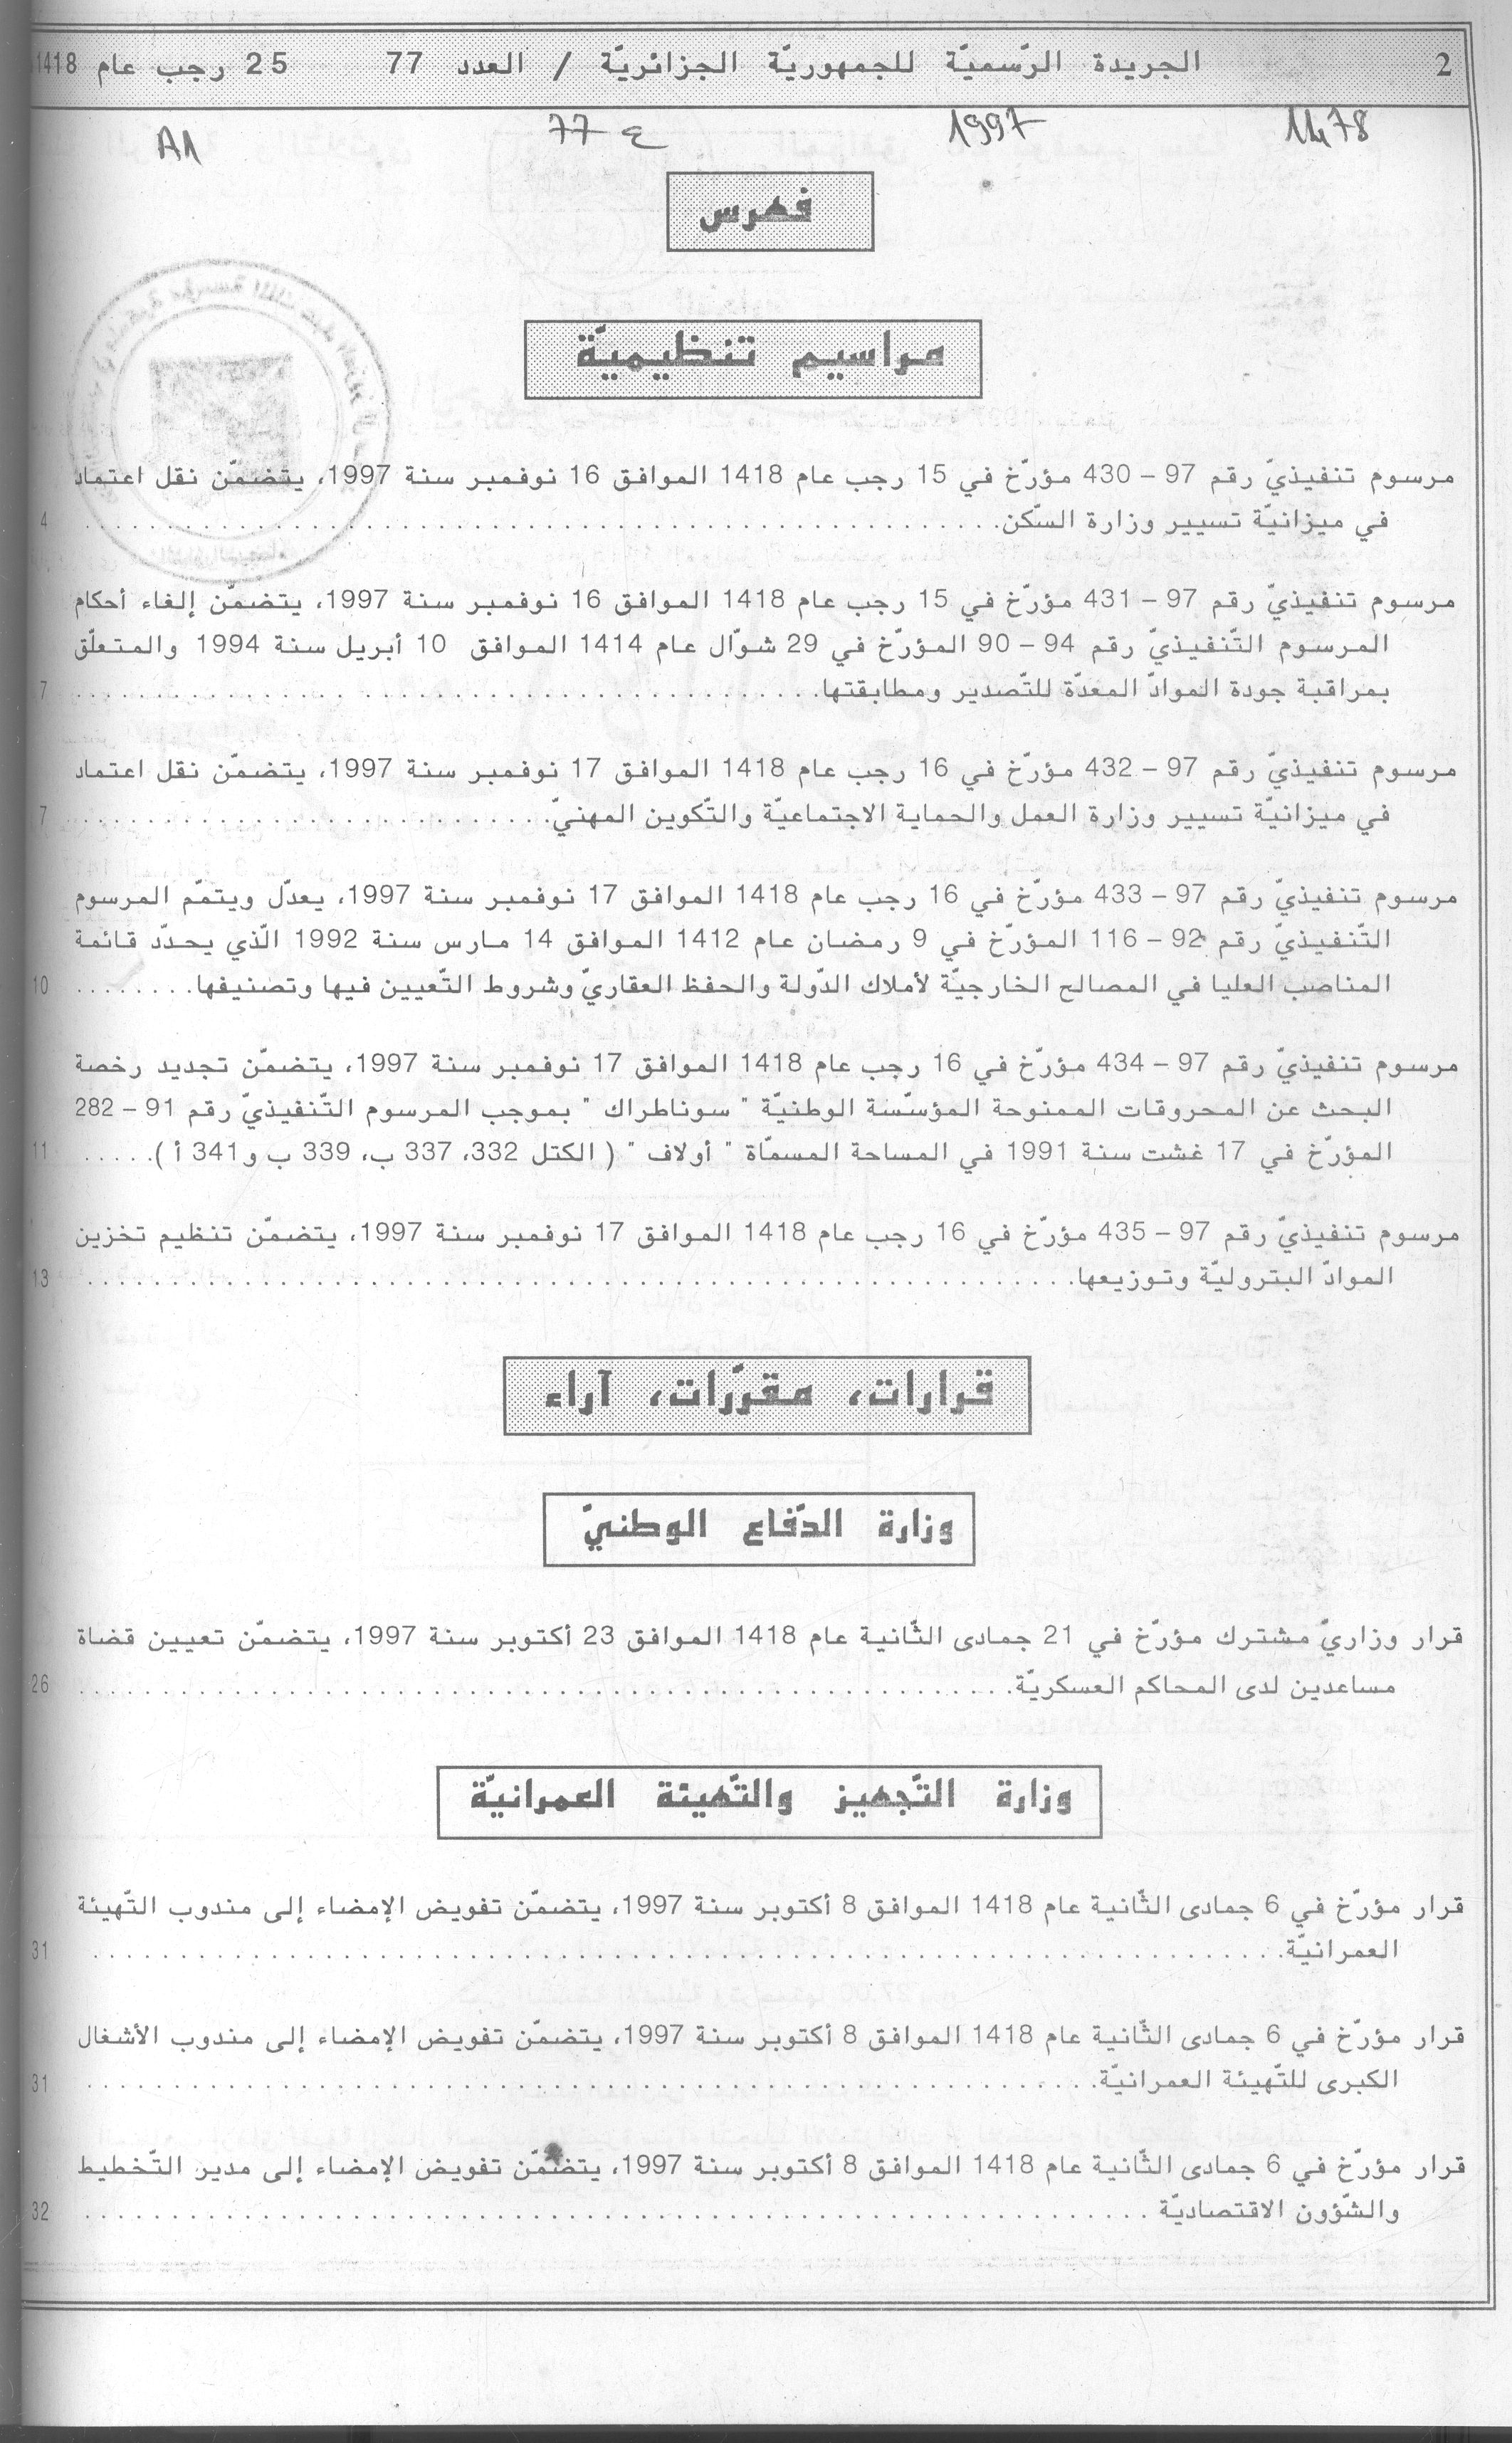 2 الجريدة الرّسميّة للجمهوريّة الجزائريّة / العدد 77 25 رجب عام 1418
1478 1997 ع 77 A1
فهرس
مراسيم تنظيميّة
مرسوم تنفيذيّ رقم 97 – 430 مؤرّخ في 15 رجب عام 1418 الموافق 16 نوفمبر سنة 1997، يتضمّن نقل اعتماد
في ميزانيّة تسيير وزارة السّكن. 4
مرسوم تنفيذيّ رقم 97 – 431 مؤرّخ في 15 رجب عام 1418 الموافق 16 نوفمبر سنة 1997، يتضمّن إلغاء أحكام
المرسوم التّنفيذيّ رقم 94 – 90 المؤرّخ في 29 شوّال عام 1414 الموافق 10 أبريل سنة 1994 والمتعلّق
بمراقبة جودة الموادّ المعدّة للتّصدير ومطابقتها. 7
مرسوم تنفيذيّ رقم 97 – 432 مؤرّخ في 16 رجب عام 1418 الموافق 17 نوفمبر سنة 1997، يتضمّن نقل اعتماد
في ميزانيّة تسيير وزارة العمل والحماية الاجتماعيّة والتّكوين المهنيّ. 7
مرسوم تنفيذيّ رقم 97 – 433 مؤرّخ في 16 رجب عام 1418 الموافق 17 نوفمبر سنة 1997، يعدّل ويتمّم المرسوم
التّنفيذيّ رقم 92 – 116 المؤرّخ في 9 رمضان عام 1412 الموافق 14 مارس سنة 1992 الّذي يحدّد قائمة
المناصب العليا في المصالح الخارجيّة لأملاك الدّولة والحفظ العقاريّ وشروط التّعيين فيها وتصنيفها. 10
مرسوم تنفيذيّ رقم 97 – 434 مؤرّخ في 16 رجب عام 1418 الموافق 17 نوفمبر سنة 1997، يتضمّن تجديد رخصة
البحث عن المحروقات الممنوحة المؤسّسة الوطنيّة " سوناطراك " بموجب المرسوم التّنفيذيّ رقم 91 – 282
المؤرّخ في 17 غشت سنة 1991 في المساحة المسمّاة " أولاف " ( الكتل 332، 337 ب، 339 ب و341 أ ). 11
مرسوم تنفيذيّ رقم 97 – 435 مؤرّخ في 16 رجب عام 1418 الموافق 17 نوفمبر سنة 1997، يتضمّن تنظيم تخزين
الموادّ البتروليّة وتوزيعها. 13
قرارات، مقرّرات، آراء
وزارة الدّفاع الوطنيّ
قرار وزاريّ مشترك مؤرّخ في 21 جمادى الثّانية عام 1418 الموافق 23 أكتوبر سنة 1997، يتضمّن تعيين قضاة
مساعدين لدى المحاكم العسكريّة. 26
وزارة التّجهيز والتّهيئة العمرانيّة
قرار مؤرّخ في 6 جمادى الثّانية عام 1418 الموافق 8 أكتوبر سنة 1997، يتضمّن تفويض الإمضاء إلى مندوب التّهيئة
العمرانيّة. 31
قرار مؤرّخ في 6 جمادى الثّانية عام 1418 الموافق 8 أكتوبر سنة 1997، يتضمّن تفويض الإمضاء إلى مندوب الأشغال
الكبرى للتّهيئة العمرانيّة. 31
قرار مؤرّخ في 6 جمادى الثّانية عام 1418 الموافق 8 أكتوبر سنة 1997، يتضمّن تفويض الإمضاء إلى مدير التّخطيط
والشّؤون الاقتصاديّة 32